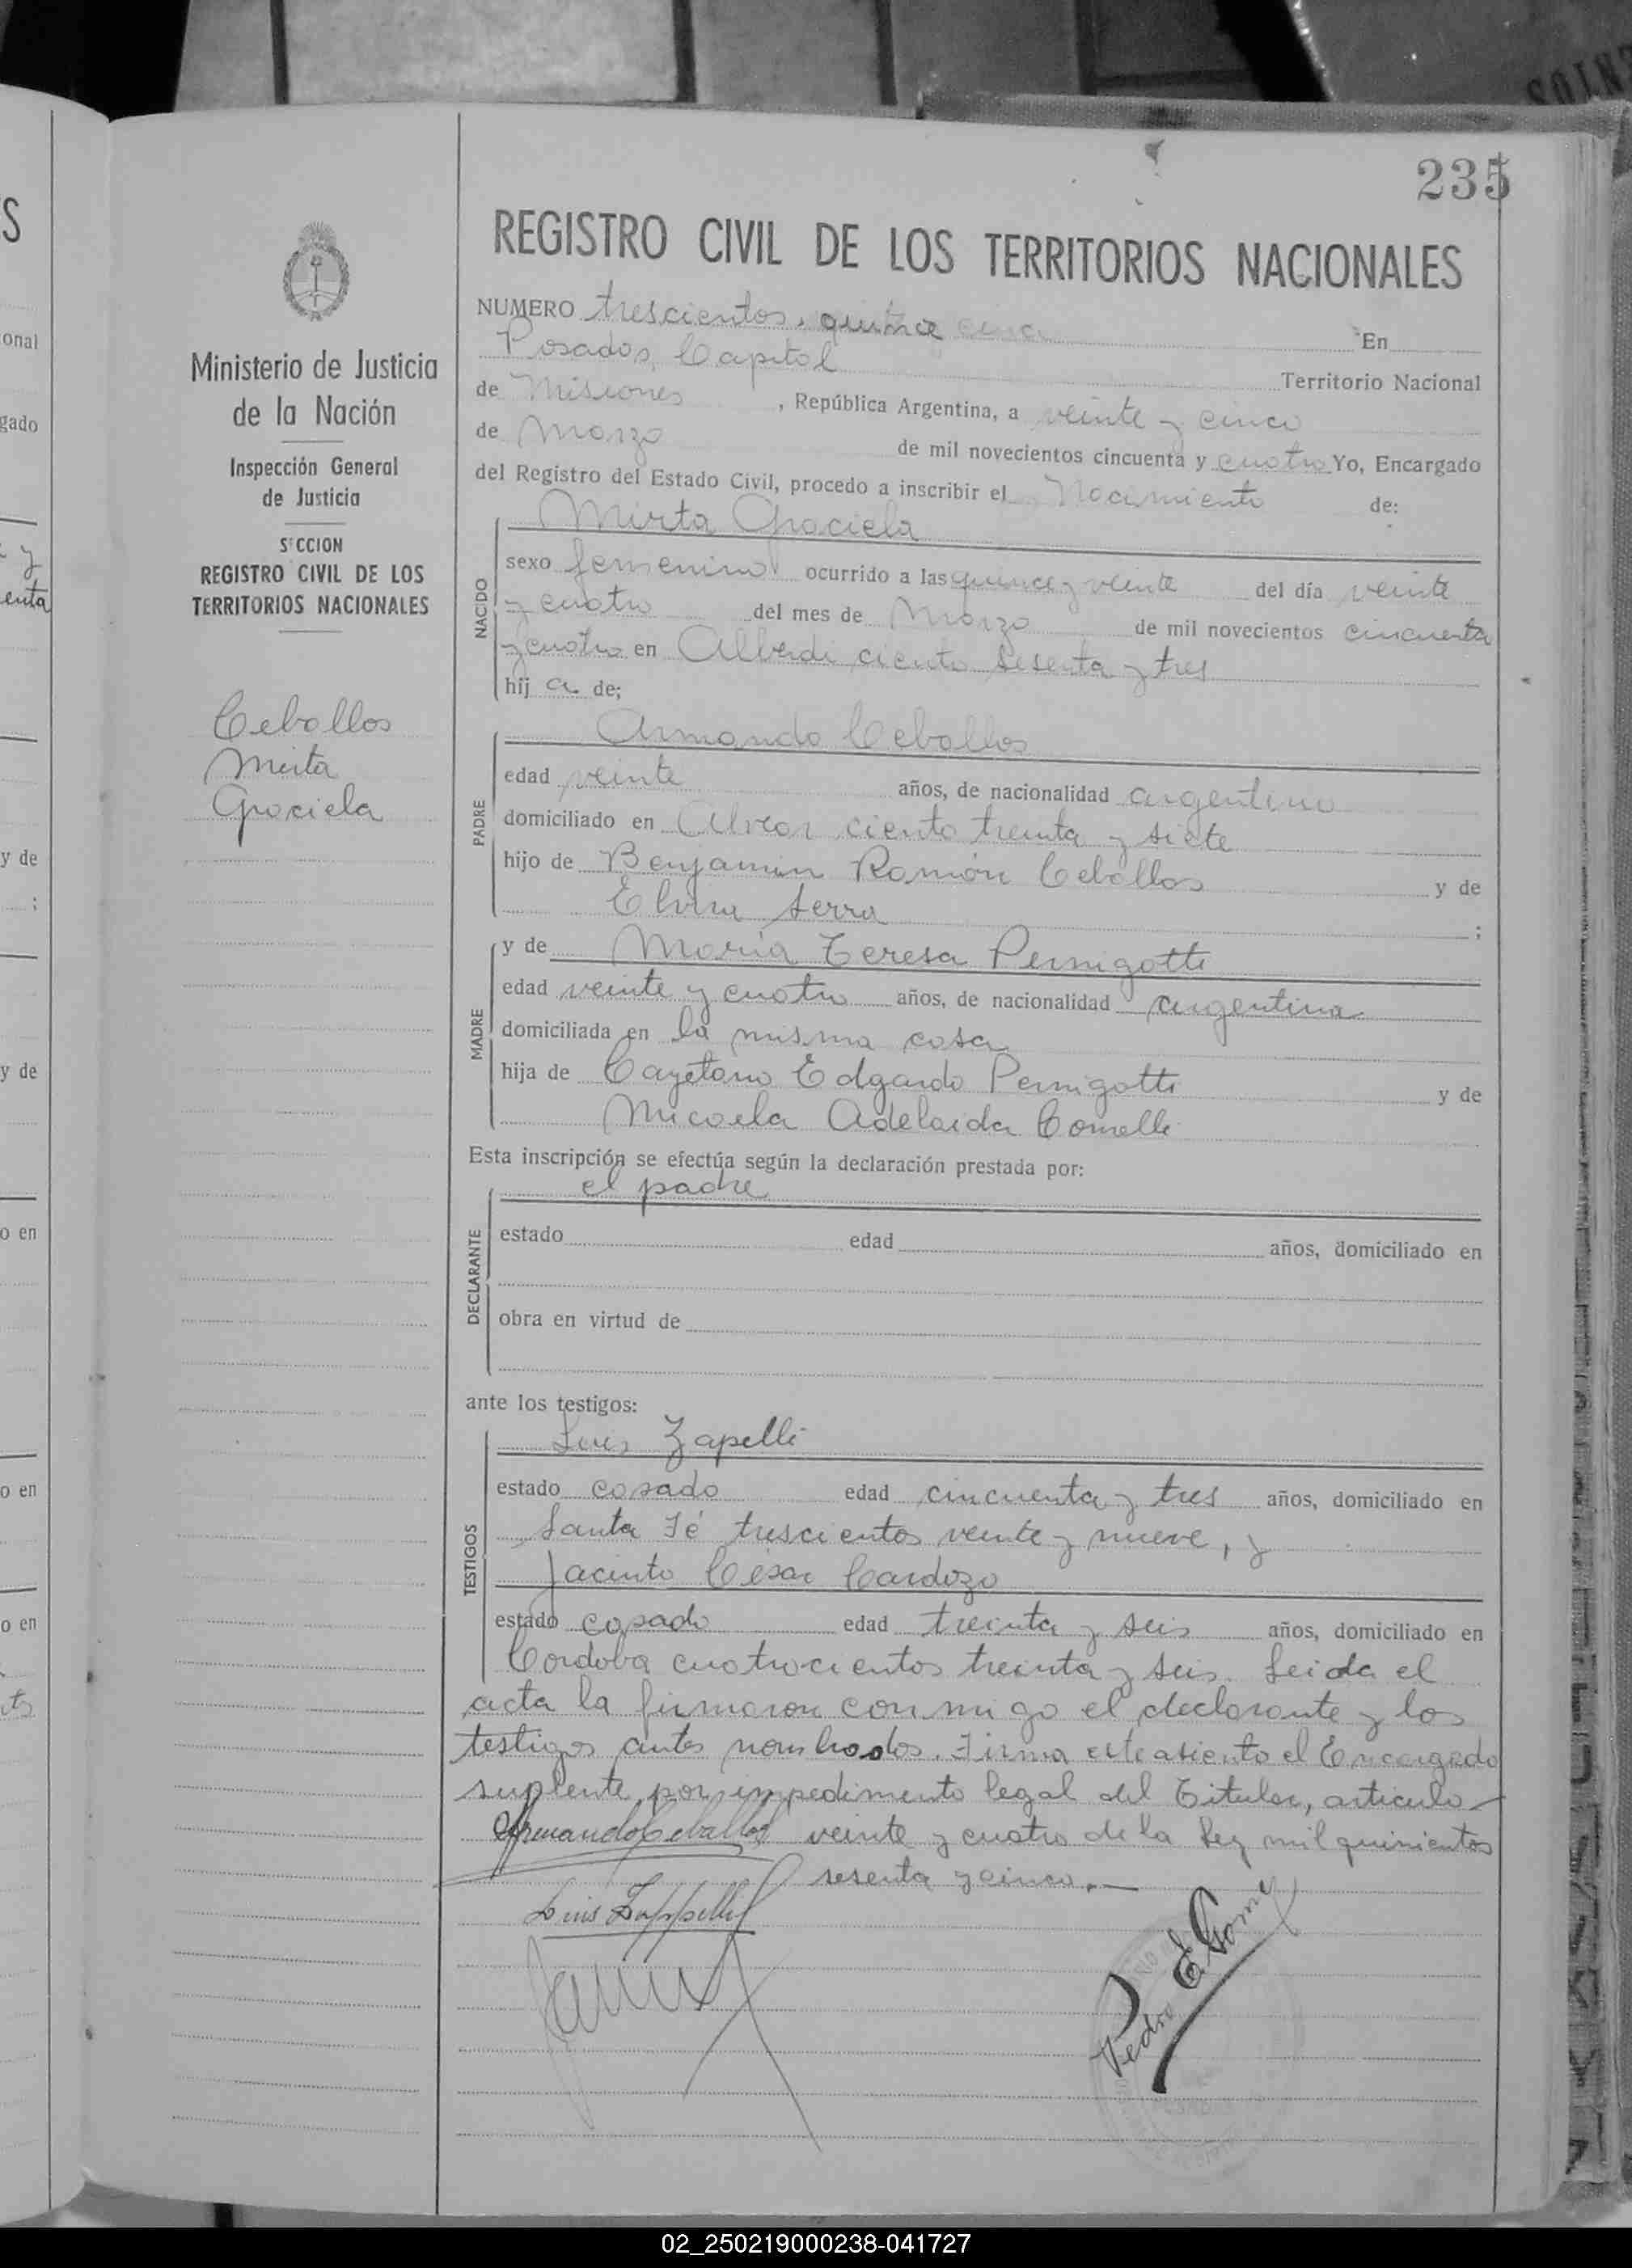 235
REGISTRO CIVIL DE LOS TERRITORIOS NACIONALES
Ministerio de Justicia
de la Nación
Inspección General
de Justicia
SECCION
REGISTRO CIVIL DE LOS
TERRITORIOS NACIONALES
Ceballos
Mirta
Graciela
NUMERO trescientos, quince En
Posadas, Capital Territorio Nacional
de Misiones , República Argentina, a veinte y cinco
de Marzo de mil novecientos cincuenta y cuatro Yo, Encargado
del Registro del Estado Civil, procedo a inscribir el Nacimiento de:
Mirta Graciela
NACIDO
sexo femenino ocurrido a las quince y veinte del día veinte
y cuatro del mes de Marzo de mil novecientos cincuenta
y cuatro en Alberdi ciento sesenta y tres
hij a de;
Armando Ceballos
PADRE
edad veinte años, de nacionalidad argentino
domiciliado en Alvear ciento treinta y siete
hijo de Benjamin Ramón Ceballos y de
Elvira Serra ;
MADRE
y de María Teresa Pernigotti
edad veinte y cuatro años, de nacionalidad argentina
domiciliada en la misma casa
hija de Cayetano Edgardo Pernigotti y de
Micaela Adelaida Comelli
Esta inscripción se efectúa según la declaración prestada por:
el padre
DECLARANTE
estado edad años, domiciliado en
obra en virtud de
ante los testigos:
Luis Zapelli
TESTIGOS
estado casado edad cincuenta y tres años, domiciliado en
Santa Fé trescientos veinte y nueve, y
Jacinto César Cardozo
estado casado edad treinta y seis años, domiciliado en
Cordoba cuatrocientos treinta y seis. Leida el
acta la firmaron conmigo el declarante y los
testigos antes nombrados. Firma este asiento el Encargado
suplente por impedimento legal del Titular, articulo
Armando Ceballos veinte y cuatro de la Ley mil quinientos
sesenta y cinco.—
Luis Zappelli
Pedro E. Gomez
02_250219000238-041727